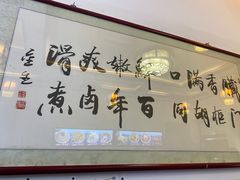 香满口鲜嫩爽滑
门框胡同百年卤煮